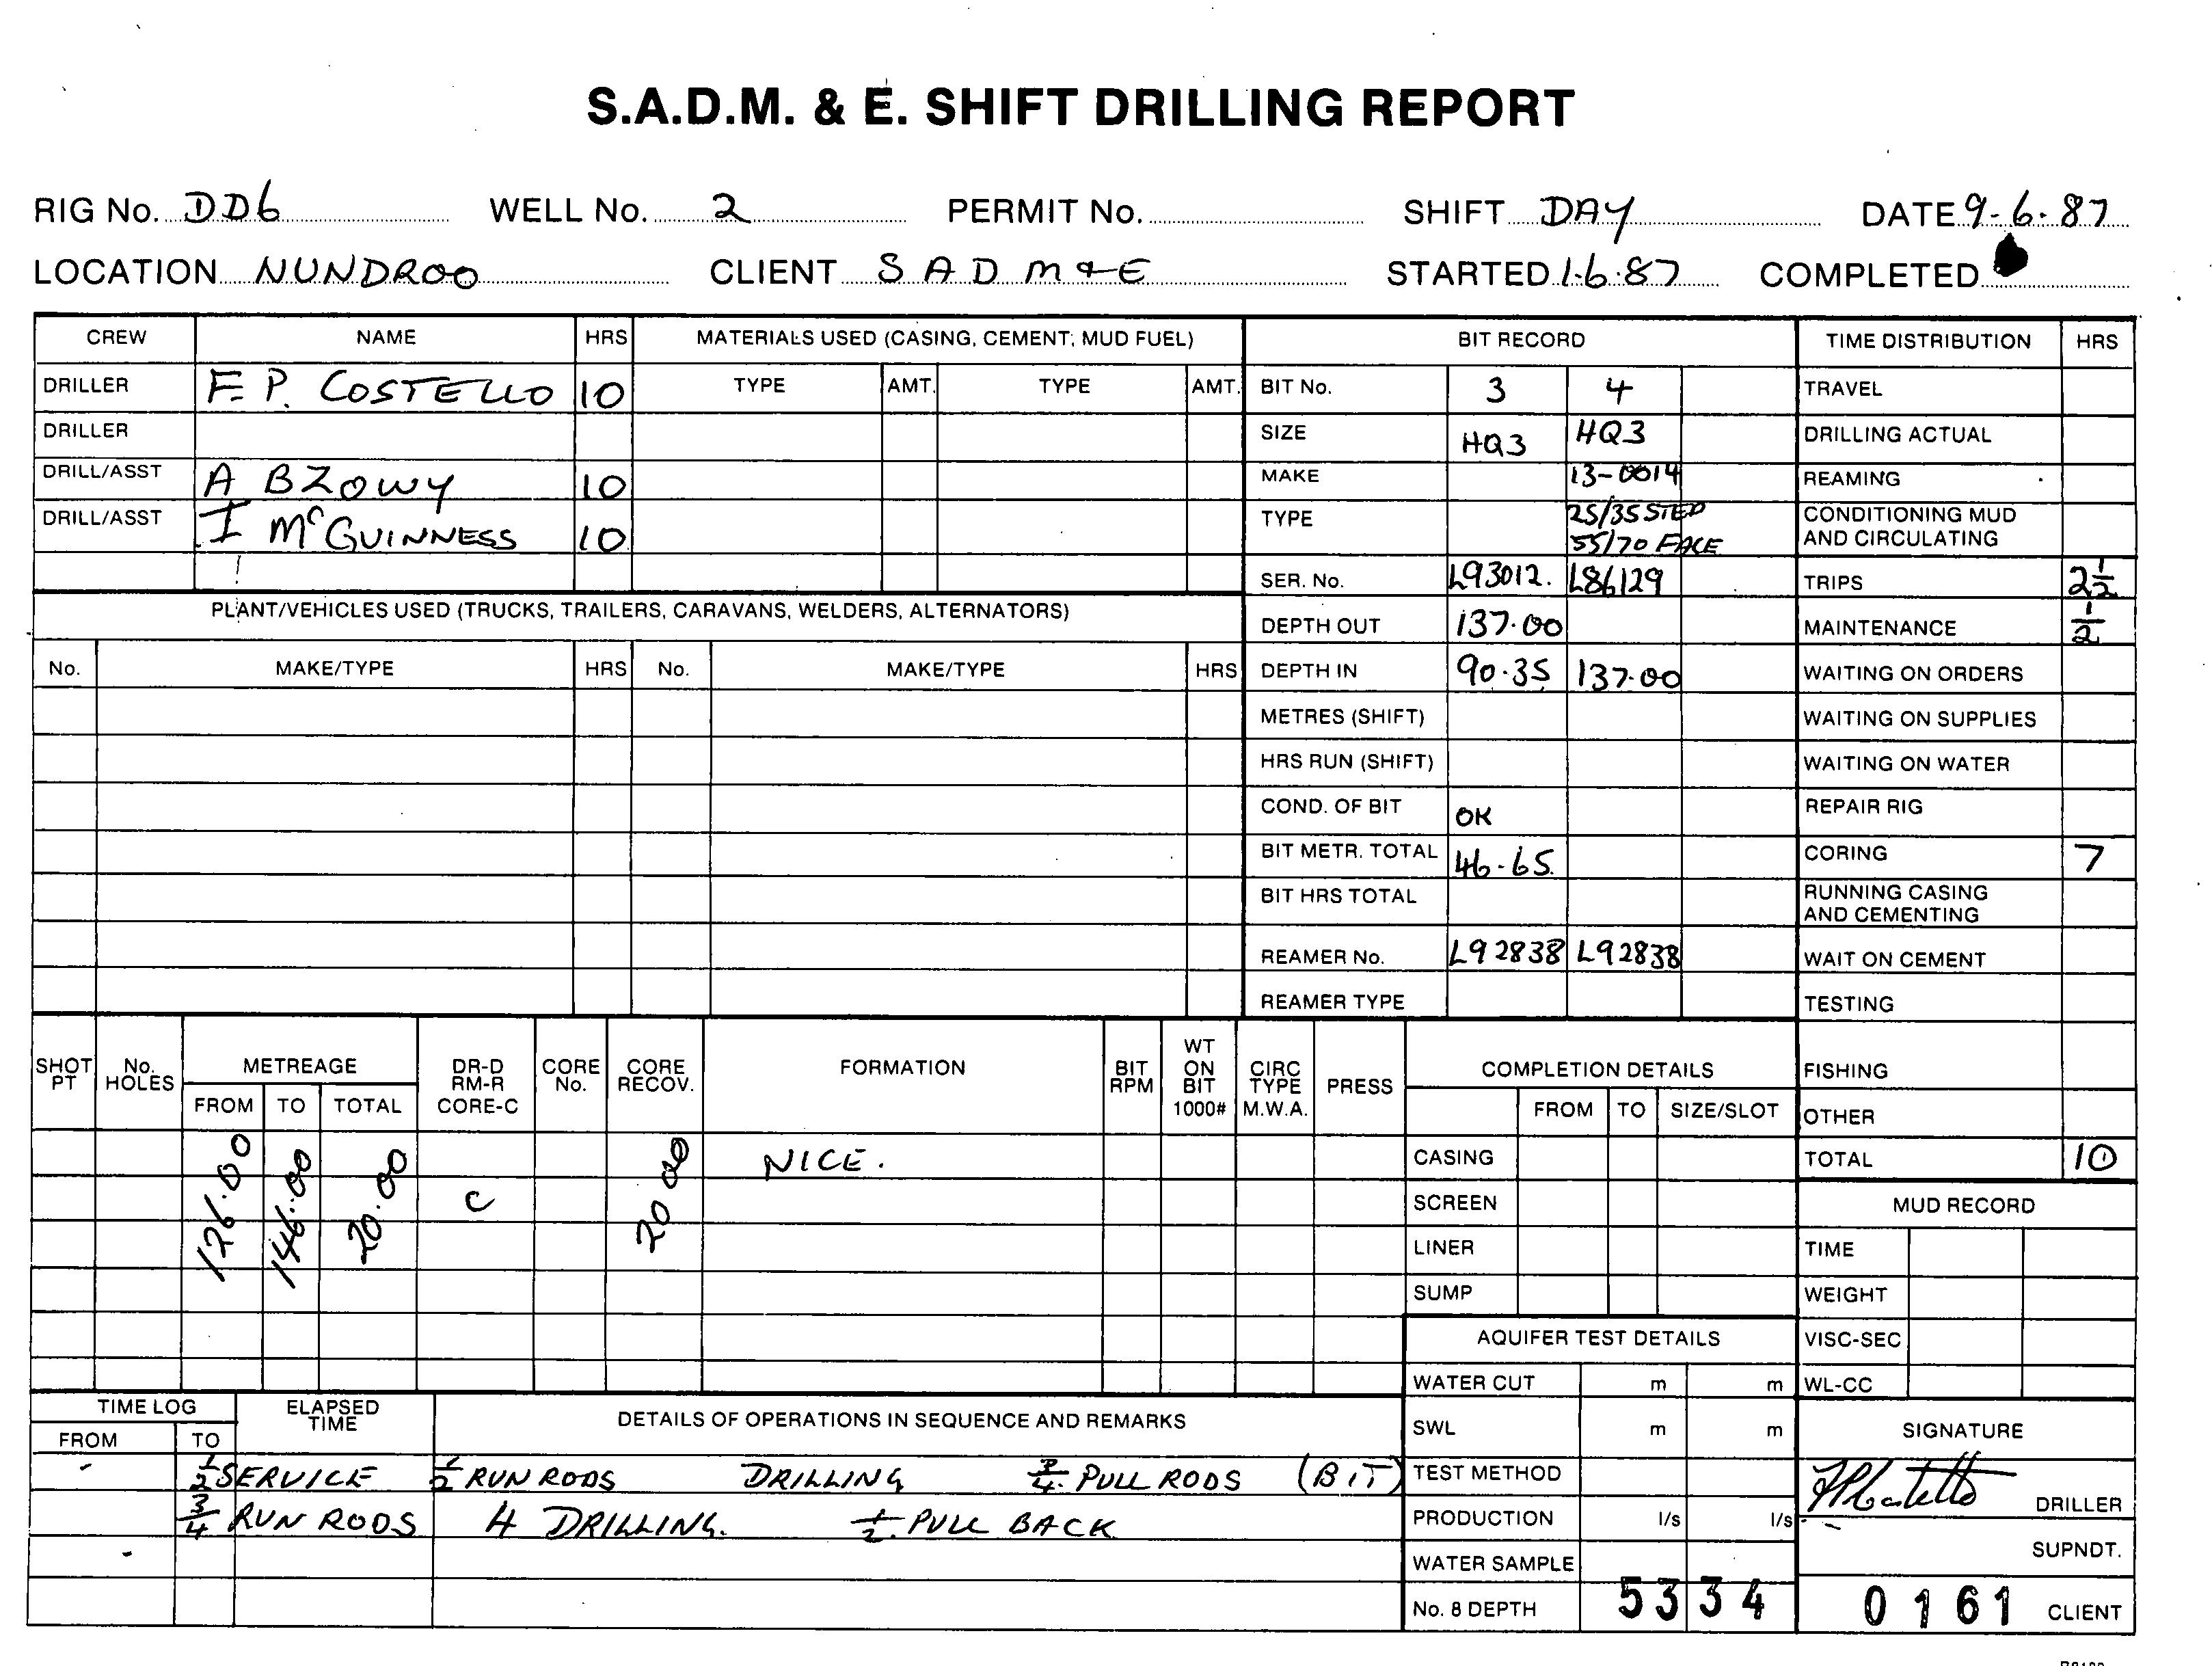 S.A.D.M. & E. SHIFT DRILLING REPORT
RIG No. DD6 WELL No. 2 PERMIT No. SHIFT DAY DATE 9-6-87
LOCATION NUNDROO CLIENT S A D M & E STARTED 1.6.87 COMPLETED
CREW NAME HRS MATERIALS USED (CASING, CEMENT, MUD FUEL) BIT RECORD TIME DISTRIBUTION HRS
DRILLER F.P. COSTELLO 10 TYPE AMT. TYPE AMT. BIT No. 3 4 TRAVEL
DRILLER SIZE HQ3 HQ3 DRILLING ACTUAL
DRILL/ASST A BZOWY 10 MAKE 13-0014 REAMING
DRILL/ASST I McGUINNESS 10 TYPE 25/35 STEP CONDITIONING MUD
55/70 FACE AND CIRCULATING
SER. No. L93012. L86129 TRIPS 2½
PLANT/VEHICLES USED (TRUCKS, TRAILERS, CARAVANS, WELDERS, ALTERNATORS) DEPTH OUT 137.00 MAINTENANCE ½
No. MAKE/TYPE HRS No. MAKE/TYPE HRS DEPTH IN 90.35 137.00 WAITING ON ORDERS
METRES (SHIFT) WAITING ON SUPPLIES
HRS RUN (SHIFT) WAITING ON WATER
COND. OF BIT OK REPAIR RIG
BIT METR. TOTAL 46.65 CORING 7
BIT HRS TOTAL RUNNING CASING
AND CEMENTING
REAMER No. L92838 L92838 WAIT ON CEMENT
REAMER TYPE TESTING
SHOT PT No. HOLES METREAGE DR-D RM-R CORE-C CORE No. CORE RECOV. FORMATION BIT RPM WT ON BIT 1000# CIRC TYPE M.W.A. PRESS COMPLETION DETAILS FISHING
FROM TO TOTAL FROM TO SIZE/SLOT OTHER
126.00 146.00 20.00 C 20 00 NICE. CASING TOTAL 10
SCREEN MUD RECORD
LINER TIME
SUMP WEIGHT
AQUIFER TEST DETAILS VISC-SEC
WATER CUT m m WL-CC
TIME LOG ELAPSED TIME DETAILS OF OPERATIONS IN SEQUENCE AND REMARKS SWL m m SIGNATURE
FROM TO
½ SERVICE ½ RUN RODS DRILLING ¾ PULL RODS (BIT) TEST METHOD
¾ RUN RODS 4 DRILLING. ½ PULL BACK PRODUCTION l/s l/s DRILLER
WATER SAMPLE SUPNDT.
No. 8 DEPTH 5334 0161 CLIENT